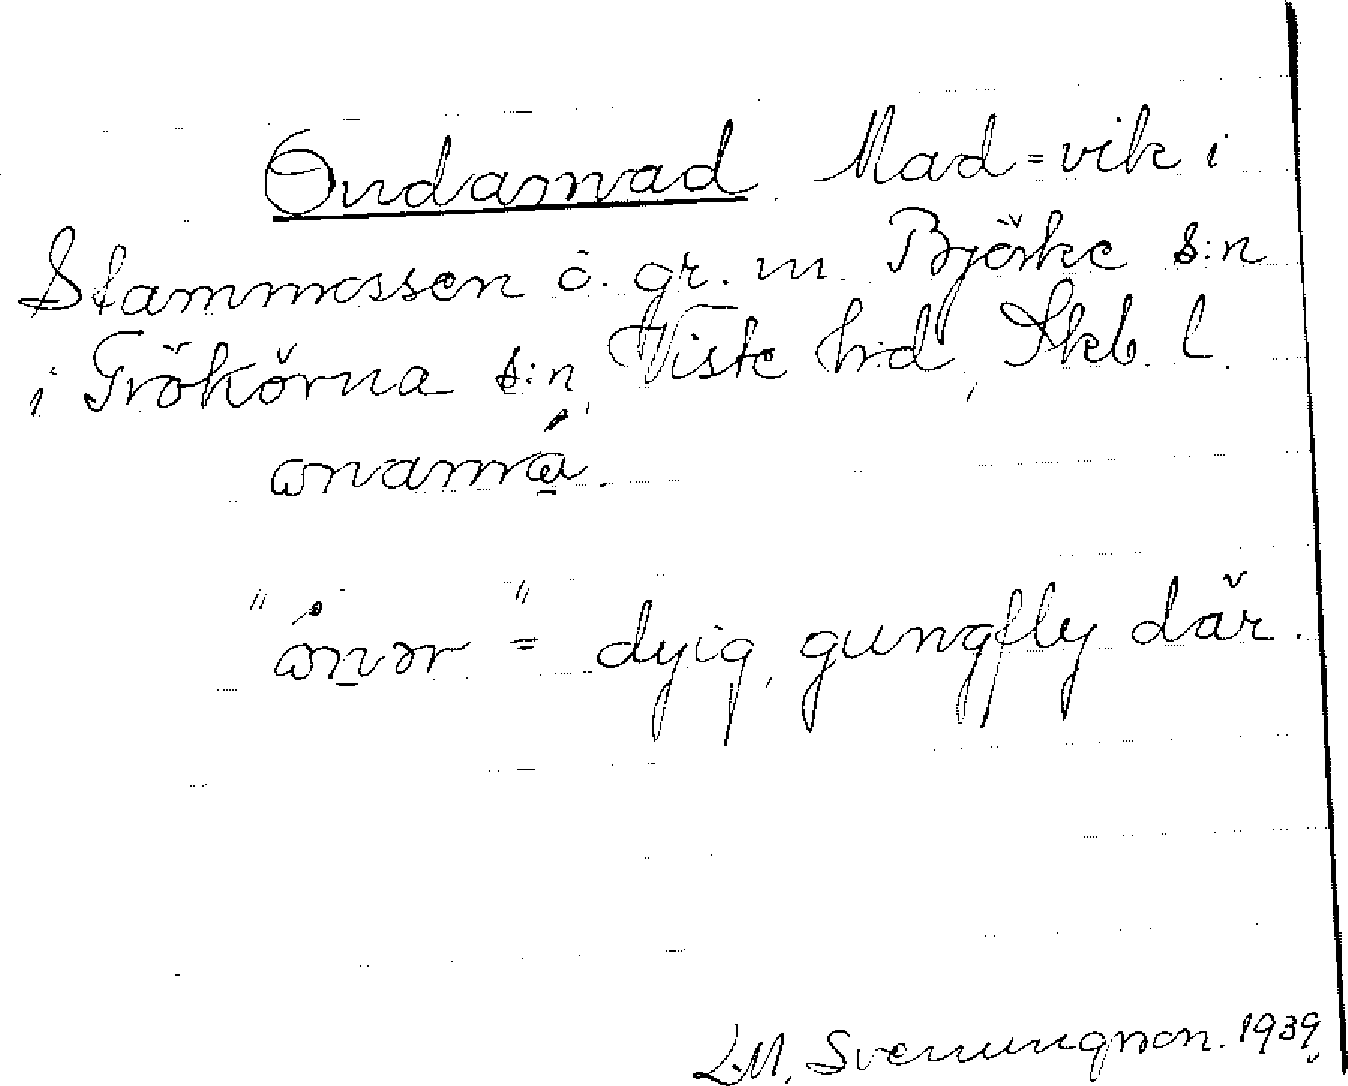 Ondamad Mad=vik i
Stammossen ö. gr. m. Björke s:n
i Grökörna s:n, Viste hrd, Skb. l.
ɷnamá.
"ɷ́nər" = dyig, gungfly där.
L.M. Svenungsson. 1939.